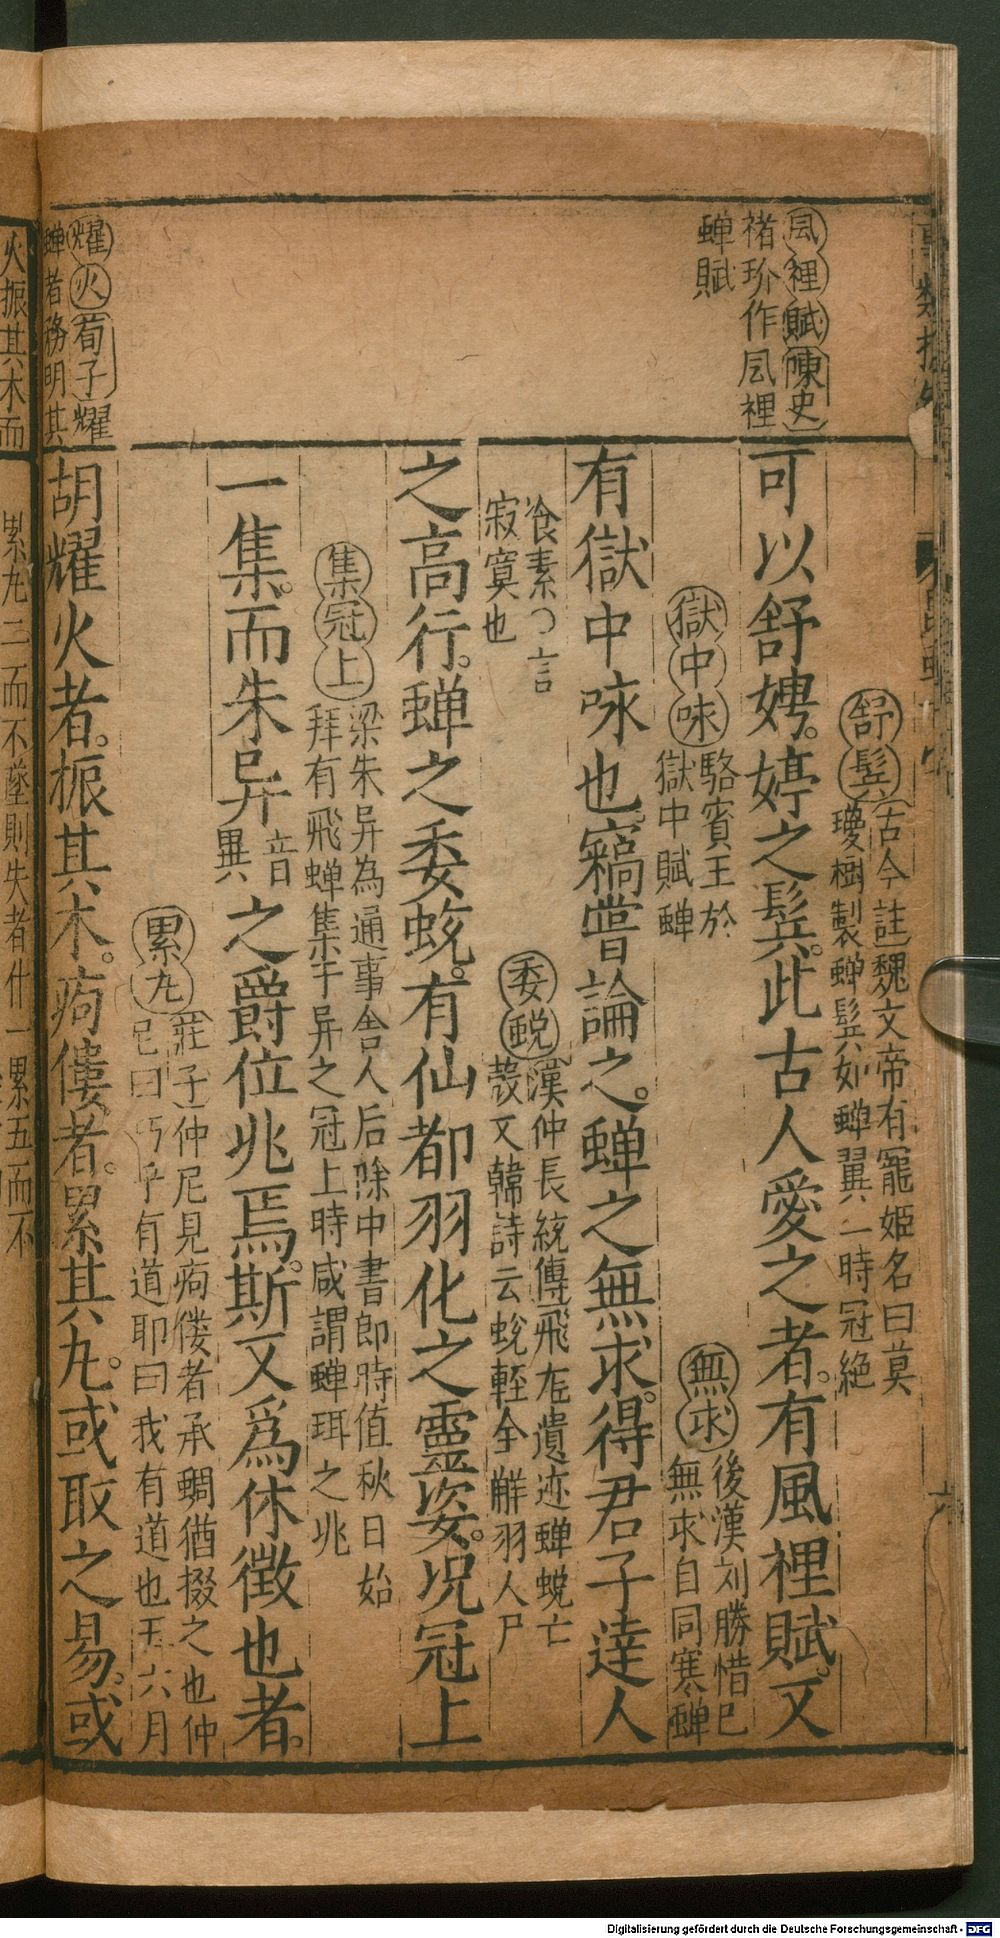 風裡賦陳史
褚玠作風裡
蟬賦
舒髩古今註魏文帝有寵姬名曰莫
瓊樹製蟬髩如蟬翼一時冠絶
可以舒娉婷之髩此古人愛之者有風裡賦又
獄中咏駱賓王於
獄中賦蟬
無求後漢刘勝惜已
無求自同寒蟬
有獄中咏也竊嘗論之蟬之無求得君子達人
飡素〇言
寂寞也
委蛻漢仲長統傳飛在遺迹蟬蛻亡
殼文韓詩云蛻輕全觧羽人尸
之高行蟬之委蛻有仙都羽化之靈姿况冠上
集冠上梁朱异為通事舎人后除中書郎時值秋日始
拜有飛蟬集于异之冠上時咸謂蟬珥之兆
一集而朱异音異之爵位兆焉斯又爲休徵也者
累九莊子仲尼見痀僂者承蜩猶掇之也仲
尼曰巧乎有道耶曰我有道也五六月
耀火荀子耀
蟬者務明其
胡耀火者振其木痀僂者累其九或取之易或
火振其木而
累九二而不墜則失者什一累五而不
Digitalisierung gefördert durch die Deutsche Forschungsgemeinschaft - DFG